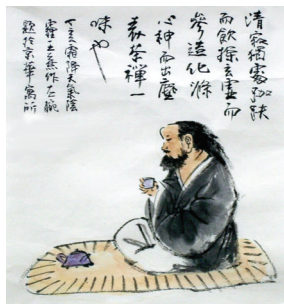 清寂獨處跏趺
而飲探玄虛而
參造化滌
心神而出塵
表茶禪一
味也
丁亥霜降天氣陰
霾焦作左腕
題於京華寓所